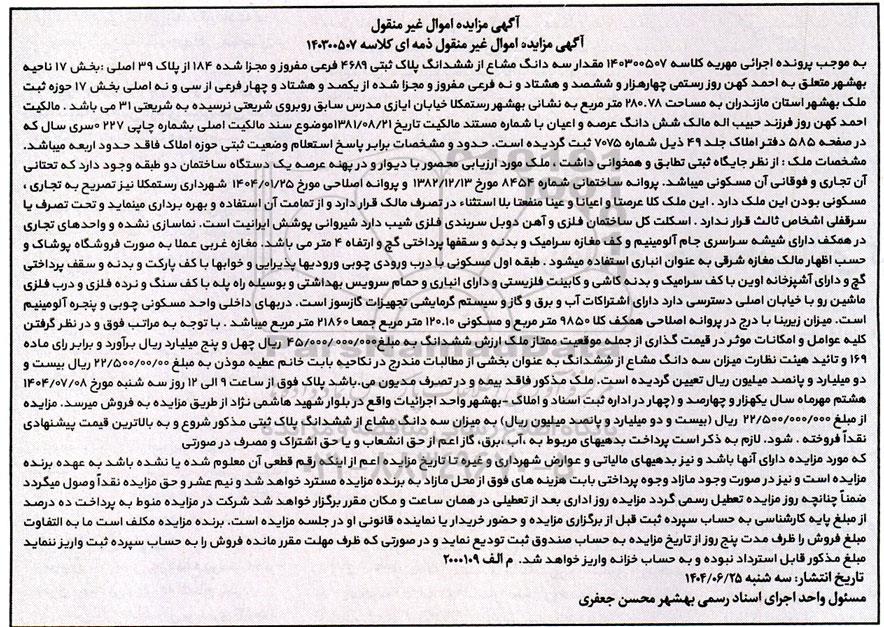 آگهی مزایده اموال غیر منقول
آگهی مزایده اموال غیر منقول ذمه ای کلاسه ۱۴۰۳۰۰۵۰۷
به موجب پرونده اجرائی مهریه کلاسه ۱۴۰۳۰۰۵۰۷ مقدار سه دانگ مشاع از ششدانگ پلاک ثبتی ۴۶۸۹ فرعی مفروز و مجزا شده ۱۸۴ از پلاک ۳۹ اصلی :بخش ۱۷ ناحیه
بهشهر متعلق به احمد کهن روز رستمی چهارهزار و ششصد و هشتاد و نه فرعی مفروز و مجزا شده از یکصد و هشتاد و چهار فرعی از سی و نه اصلی بخش ۱۷ حوزه ثبت
ملک بهشهر استان مازندران به مساحت ۲۸۰.۷۸ متر مربع به نشانی بهشهر رستمکلا خیابان ایازی مدرس سابق روبروی شریعتی نرسیده به شریعتی ۳۱ می باشد . مالکیت
احمد کهن روز فرزند حبیب اله مالک شش دانگ عرصه و اعیان با شماره مستند مالکیت تاریخ ۱۳۸۱/۰۸/۲۱موضوع سند مالکیت اصلی بشماره چاپی ۲۲۷ ۰سری سال که
در صفحه ۵۸۵ دفتر املاک جلد ۴۹ ذیل شماره ۷۰۷۵ ثبت گردیده است. حدود و مشخصات برابر پاسخ استعلام وضعیت ثبتی حوزه املاک فاقد حدود اربعه میباشد.
مشخصات ملک : از نظر جایگاه ثبتی تطابق و همخوانی داشت ، ملک مورد ارزیابی محصور با دیوار و در پهنه عرصه یک دستگاه ساختمان دو طبقه وجود دارد که تحتانی
آن تجاری و فوقانی آن مسکونی میباشد. پروانه ساختمانی شماره ۸۴۵۴ مورخ ۱۳۸۲/۱۲/۱۳ و پروانه اصلاحی مورخ ۱۴۰۴/۰۱/۲۵ شهرداری رستمکلا نیز تصریح به تجاری ،
مسکونی بودن این ملک دارد . این ملک کلا عرصتا و اعیانا و عینا منفعتا بلا استثناء در تصرف مالک قرار دارد و از تمامت آن استفاده و بهره برداری مینماید و تحت تصرف یا
سرقفلی اشخاص ثالث قرار ندارد . اسکلت کل ساختمان فلزی و آهن دوبل سربندی فلزی شیب دارد شیروانی پوشش ایرانیت است. نماسازی نشده و واحدهای تجاری
در همکف دارای شیشه سراسری جام آلومینیم و کف مغازه سرامیک و بدنه و سقفها پرداختی گچ و ارتفاء ۴ متر می باشد. مغازه غربی عملا به صورت فروشگاه پوشاک و
حسب اظهار مالک مغازه شرقی به عنوان انباری استفاده میشود . طبقه اول مسکونی با درب ورودی چوبی ورودیها پذیرایی و خوابها با کف پارکت و بدنه و سقف پرداختی
گچ و دارای آشپزخانه اوپن با کف سرامیک و بدنه کاشی و کابینت فلزیستی و دارای انباری و حمام سرویس بهداشتی و بوسیله راه پله با کف سنگ و نرده فلزی و درب فلزی
ماشین رو با خیابان اصلی دسترسی دارد دارای اشتراکات آب و برق و گاز و سیستم گرمایشی تجهیزات گازسوز است. دربهای داخلی واحد مسکونی چوبی و پنجره آلومینیم
است. میزان زیربنا با درج در پروانه اصلاحی همکف کلا ۹۸۵۰ متر مربع و مسکونی ۱۲۰.۱۰ متر مربع جمعا ۲۱۸۶۰ متر مربع میباشد . با توجه به مراتب فوق و در نظر گرفتن
کلیه عوامل و امکانات موثر در قیمت گذاری از جمله موقعیت ممتاز ملک ارزش ششدانگ به مبلغ ۴۵/۰۰۰/۰۰۰/۰۰۰ ریال چهل و پنج میلیارد ریال برآورد و برابر رای ماده
۱۶۹ و تائید هیئت نظارت میزان سه دانگ مشاع از ششدانگ به عنوان بخشی از مطالبات مندرج در نکاحیه بابت خانم عطیه موذن به مبلغ ۲۲/۵۰۰/۰۰/۰۰ ریال بیست و
دو میلیارد و پانصد میلیون ریال تعیین گردیده است. ملک مذکور فاقد بیمه و در تصرف مدیون می.باشد پلاک فوق از ساعت ۹ الی ۱۲ روز سه شنبه مورخ ۱۴۰۴/۰۷/۰۸
هشتم مهرماه سال یکهزار و چهارصد و (چهار در اداره ثبت اسناد و املاک - بهشهر واحد اجرائیات واقع در بلوار شهید هاشمی نژاد از طریق مزایده به فروش میرسد. مزایده
از مبلغ ۲۲/۵۰۰/۰۰۰/۰۰۰ ریال (بیست و دو میلیارد و پانصد میلیون ریال) به میزان سه دانگ مشاع از ششدانگ پلاک ثبتی مذکور شروع و به بالاترین قیمت پیشنهادی
نقداً فروخته . شود. لازم به ذکر است پرداخت بدهیهای مربوط به ،آب، برق، گاز اعم از حق انشعاب و یا حق اشتراک و مصرف در صورتی
که مورد مزایده دارای آنها باشد و نیز بدهیهای مالیاتی و عوارض شهرداری و غیره تا تاریخ مزایده اعم از اینکه رقم قطعی آن معلوم شده یا نشده باشد به عهده برنده
مزایده است و نیز در صورت وجود مازاد وجوه پرداختی بابت هزینه های فوق از محل مازاد به برنده مزایده مسترد خواهد شد و نیم عشر و حق مزایده نقداً وصول میگردد
ضمناً چنانچه روز مزایده تعطیل رسمی گردد مزایده روز اداری بعد از تعطیلی در همان ساعت و مکان مقرر برگزار خواهد شد شرکت در مزایده منوط به پرداخت ده درصد
از مبلغ پایه کارشناسی به حساب سپرده ثبت قبل از برگزاری مزایده و حضور خریدار یا نماینده قانونی او در جلسه مزایده است. برنده مزایده مکلف است ما به التفاوت
مبلغ فروش را ظرف مدت پنج روز از تاریخ مزایده به حساب صندوق ثبت تودیع نماید و در صورتی که ظرف مهلت مقرر مانده فروش را به حساب سپرده ثبت واریز ننماید
مبلغ مذکور قابل استرداد نبوده و به حساب خزانه واریز خواهد شد. م الف ۲۰۰۰۱۰۹
تاریخ انتشار: سه شنبه ۱۴۰۴/۰۶/۲۵
مسئول واحد اجرای اسناد رسمی بهشهر محسن جعفری